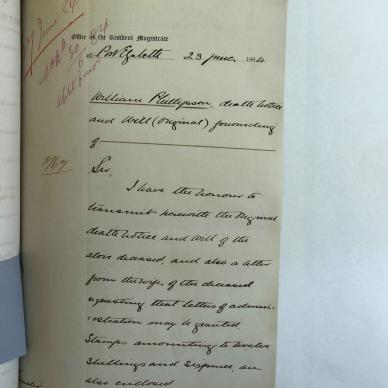 7 June 84
Office of the Resident Magistrate
Port Elizabeth 23 June 1884
William Phillipson, death notice
and Will (original) forwarding
of
3/167
Sir,
I have the honour to
transmit herewith the original
death notice and Will of the
above deceased, and also a letter
from the wife of the deceased
requesting that letters of admin-
istration may be granted
Stamps amounting to twelve
Shillings and Sixpence, are
also enclosed